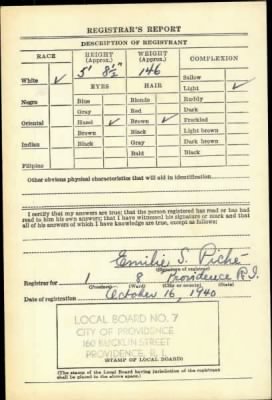 REGISTRAR'S REPORT
DESCRIPTION OF REGISTRANT
RACE HEIGHT (Approx.) WEIGHT (Approx.) COMPLEXION
White ✓ 5' 8½" 146 Sallow
EYES HAIR Light ✓
Negro Blue Blonde Ruddy
Gray Red Dark
Oriental Hazel ✓ Brown ✓ Freckled
Brown Black Light brown
Indian Black Gray Dark brown
Bald Black
Filipino
Other obvious physical characteristics that will aid in identification
I certify that my answers are true; that the person registered has read or has had
read to him his own answers; that I have witnessed his signature or mark and that
all of his answers of which I have knowledge are true, except as follows:
Emilie S. Piché
(Signature of registrar)
Registrar for 1 8 Providence R.I.
(Precinct) (Ward) (City or county)
Date of registration October 16, 1940
LOCAL BOARD NO. 7
CITY OF PROVIDENCE
160 BUCKLIN STREET
PROVIDENCE, R. I.
(STAMP OF LOCAL BOARD)
(The stamp of the Local Board having jurisdiction of the registrant
shall be placed in the above space.)